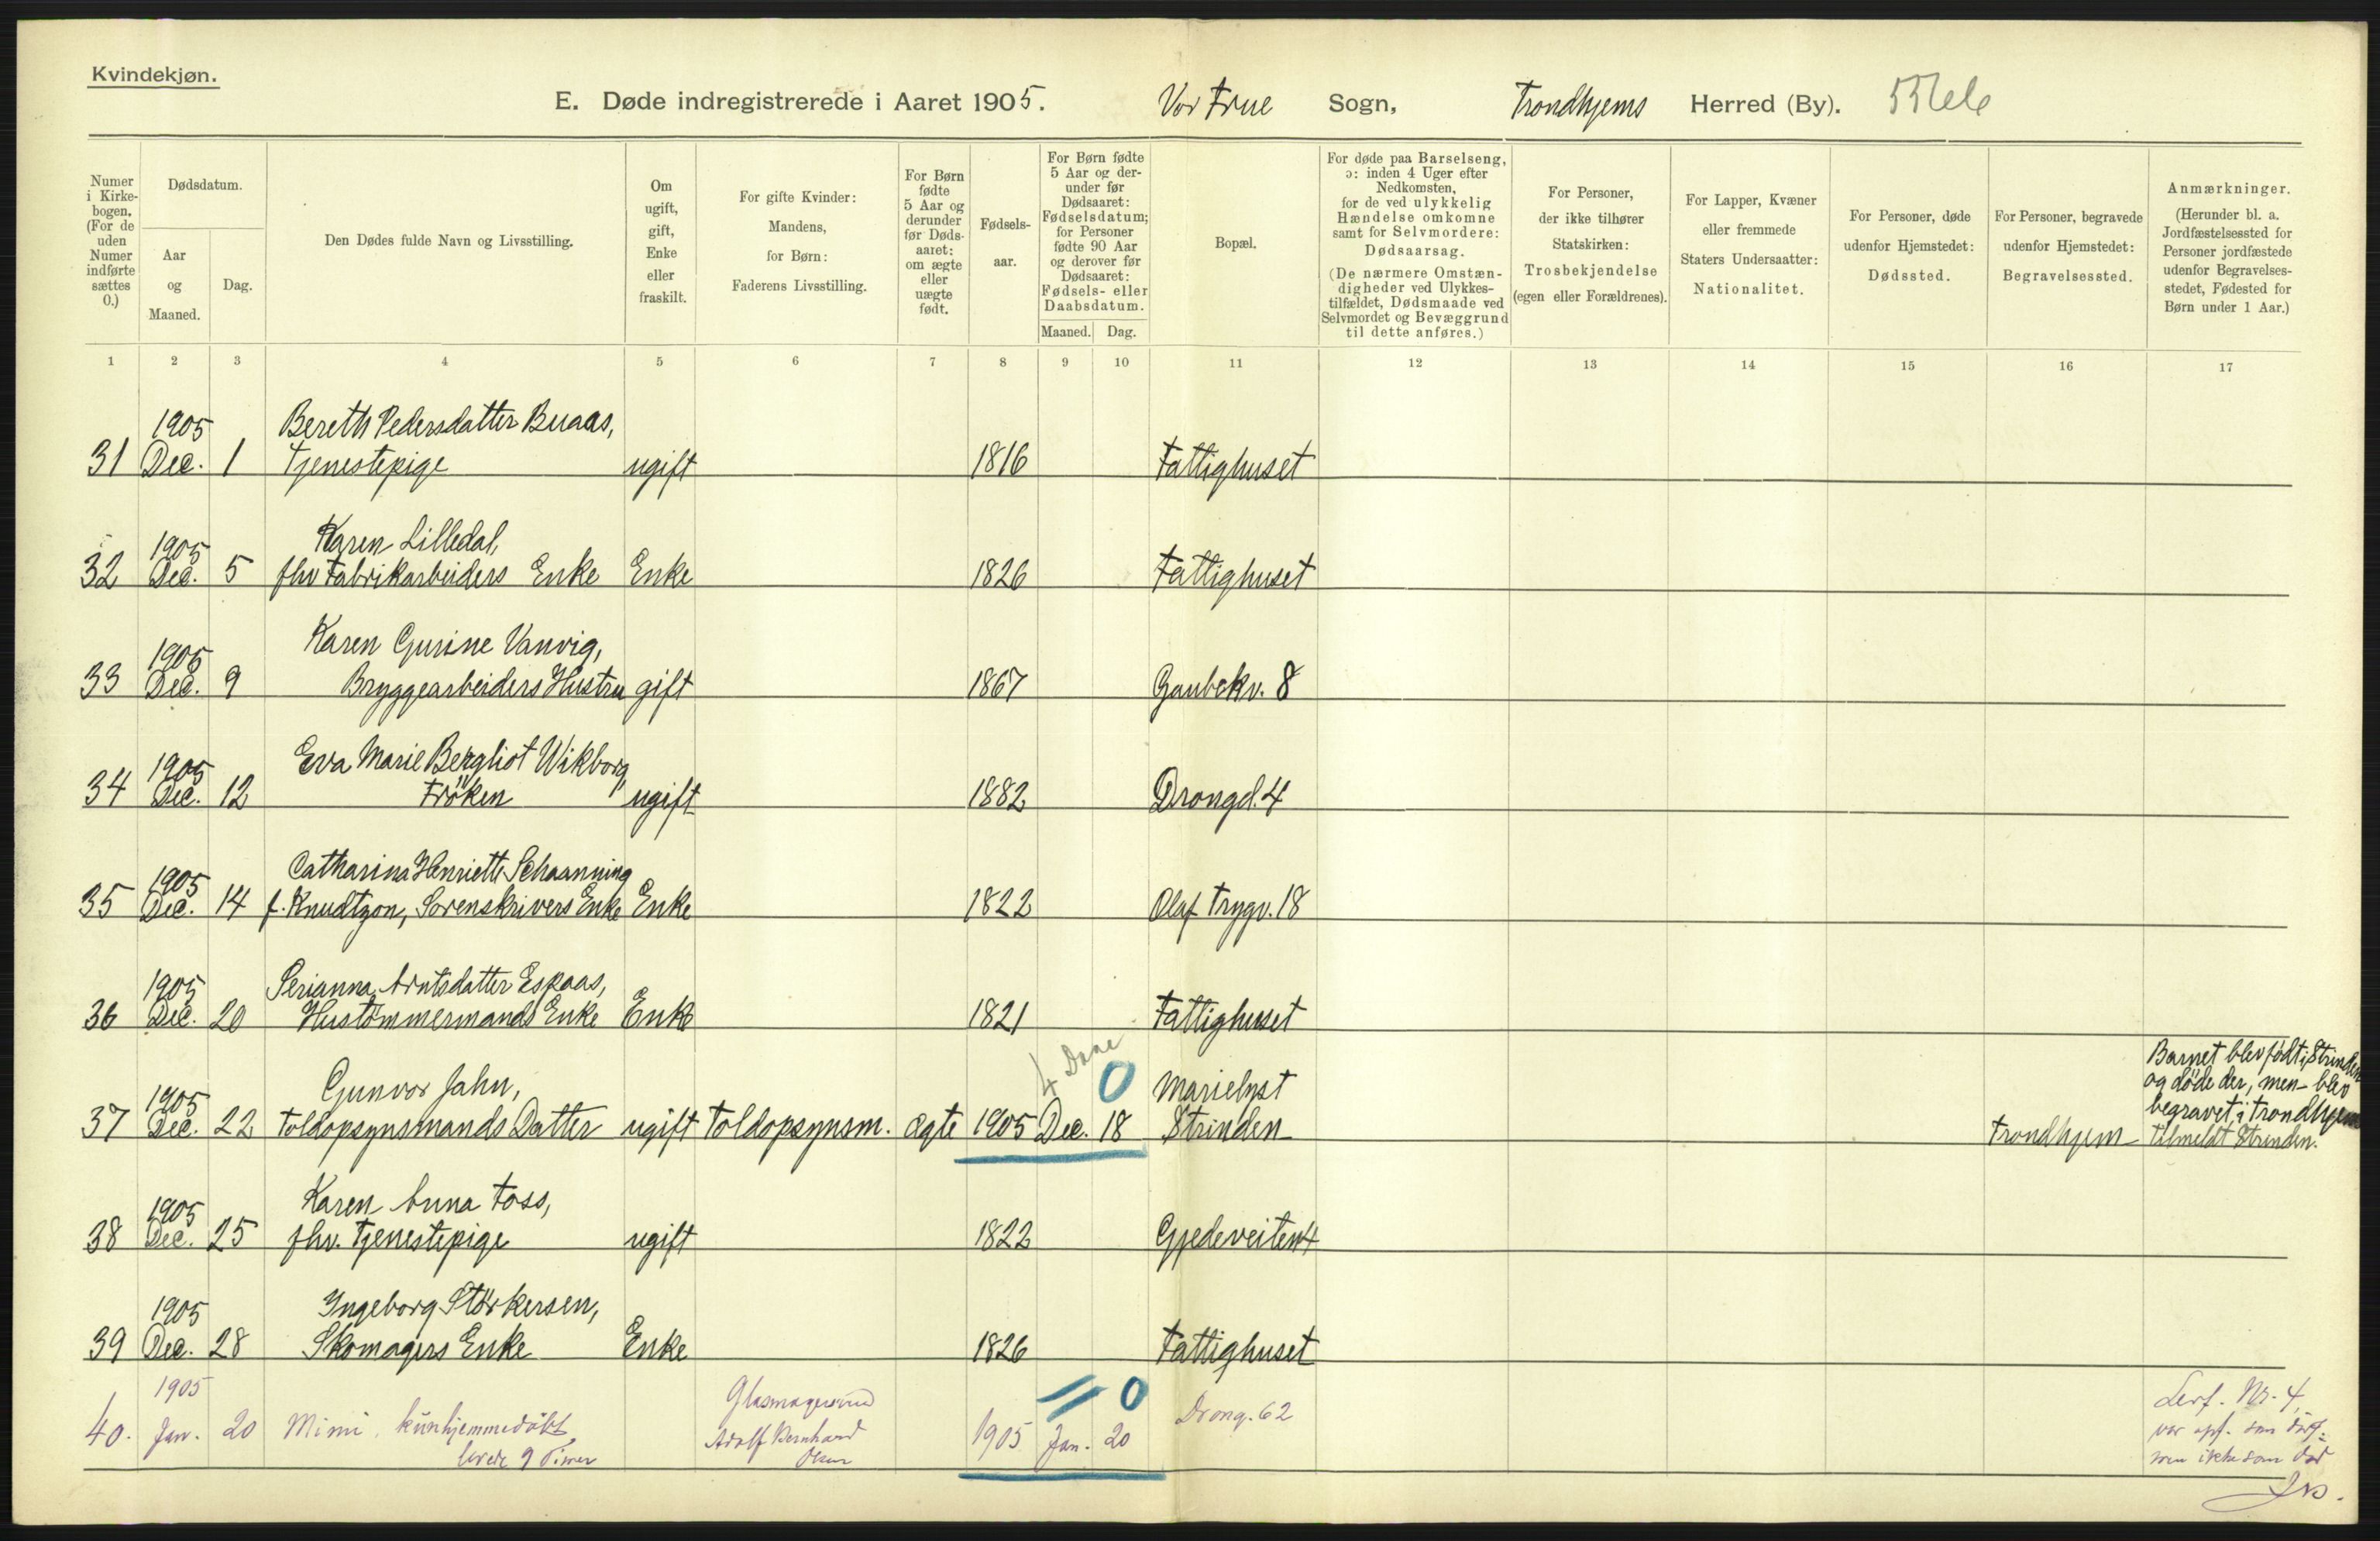 Kvindekjøn.
E. Døde indregistrerede i Aaret 1905. Vor Frue Sogn, Trondhjems Herred (By).
Numer i Kirke-bogen. (For de uden Numer indførte sættes 0.)
Dødsdatum.
Aar og Maaned.
Dag.
Den Dødes fulde Navn og Livsstilling.
Om ugift, gift, Enke eller fraskilt.
For gifte Kvinder: Mandens, for Børn: Faderens Livsstilling.
For Børn fødte 5 Aar og derunder før Døds-aaret: om ægte eller uægte født.
Fødsels-aar.
For Børn fødte 5 Aar og der-under før Dødsaaret: Fødselsdatum; for Personer fødte 90 Aar og derover før Dødsaaret: Fødsels- eller Daabsdatum.
Maaned. Dag.
Bopæl.
For døde paa Barselseng, ɔ: inden 4 Uger efter Nedkomsten, for de ved ulykkelig Hændelse omkomne samt for Selvmordere: Dødsaarsag. (De nærmere Omstæn-digheder ved Ulykkes-tilfældet, Dødsmaade ved Selvmordet og Bevæggrund til dette anføres.)
For Personer, der ikke tilhører Statskirken: Trosbekjendelse (egen eller Forældrenes).
For Lapper, Kvæner eller fremmede Staters Undersaatter: Nationalitet.
For Personer, døde udenfor Hjemstedet: Dødssted.
For Personer, begravede udenfor Hjemstedet: Begravelsessted.
Anmærkninger. (Herunder bl. a. Jordfæstelsessted for Personer jordfæstede udenfor Begravelses-stedet, Fødested for Børn under 1 Aar.)
1 2 3 4 5 6 7 8 9 10 11 12 13 14 15 16 17
1905 Bereth Pedersdatter Buaas,
31 Dec. 1 Tjenestepige ugift 1816 Fattighuset
1905 Karen Lilledal,
32 Dec. 5 fhv Fabrikarbeiders Enke Enke 1826 Fattighuset
1905 Karen Gurine Vanvig,
33 Dec. 9 Bryggearbeiders Hustru gift 1867 Gaubekv. 8
1905 Eva Marie Bergliot Wikborg,
34 Dec. 12 Fröken ugift 1882 Drongd. 4
1905 Catharina Henriette Schaanning
35 Dec. 14 f. Knudtzon, Sorenskrivers Enke Enke 1822 Olaf Trygv. 18
1905 Serianna Arntsdatter Espaas,
36 Dec. 20 Hustömmermands Enke Enke 1821 Fattighuset
1905 Gunvor Jahn, 4 0 Marielyst
37 Dec. 22 Toldopsynsmands Datter ugift Toldopsynsm. ægte 1905 Dec. 18 Strinden Trondhjem
Barnet blev födt i Strinden
og döde der, men blev
begravet i Trondhjem
tilmeldt Strinden.
1905 Karen Anna Foss,
38 Dec. 25 fhv. Tjenestepige ugift 1822 Gjedeveiten 4
1905 Ingeborg Störkersen,
39 Dec. 28 Skomagers Enke Enke 1826 Fattighuset
1905 Glasmagersvend 0 Drong. 62
40. Jan. 20 Mimi, kun hjemmedöbt, Adolf Bernhard Olsen 1905 Jan. 20
levede 9 Timer
Nr. 4,
var opf. som
men ikke som död